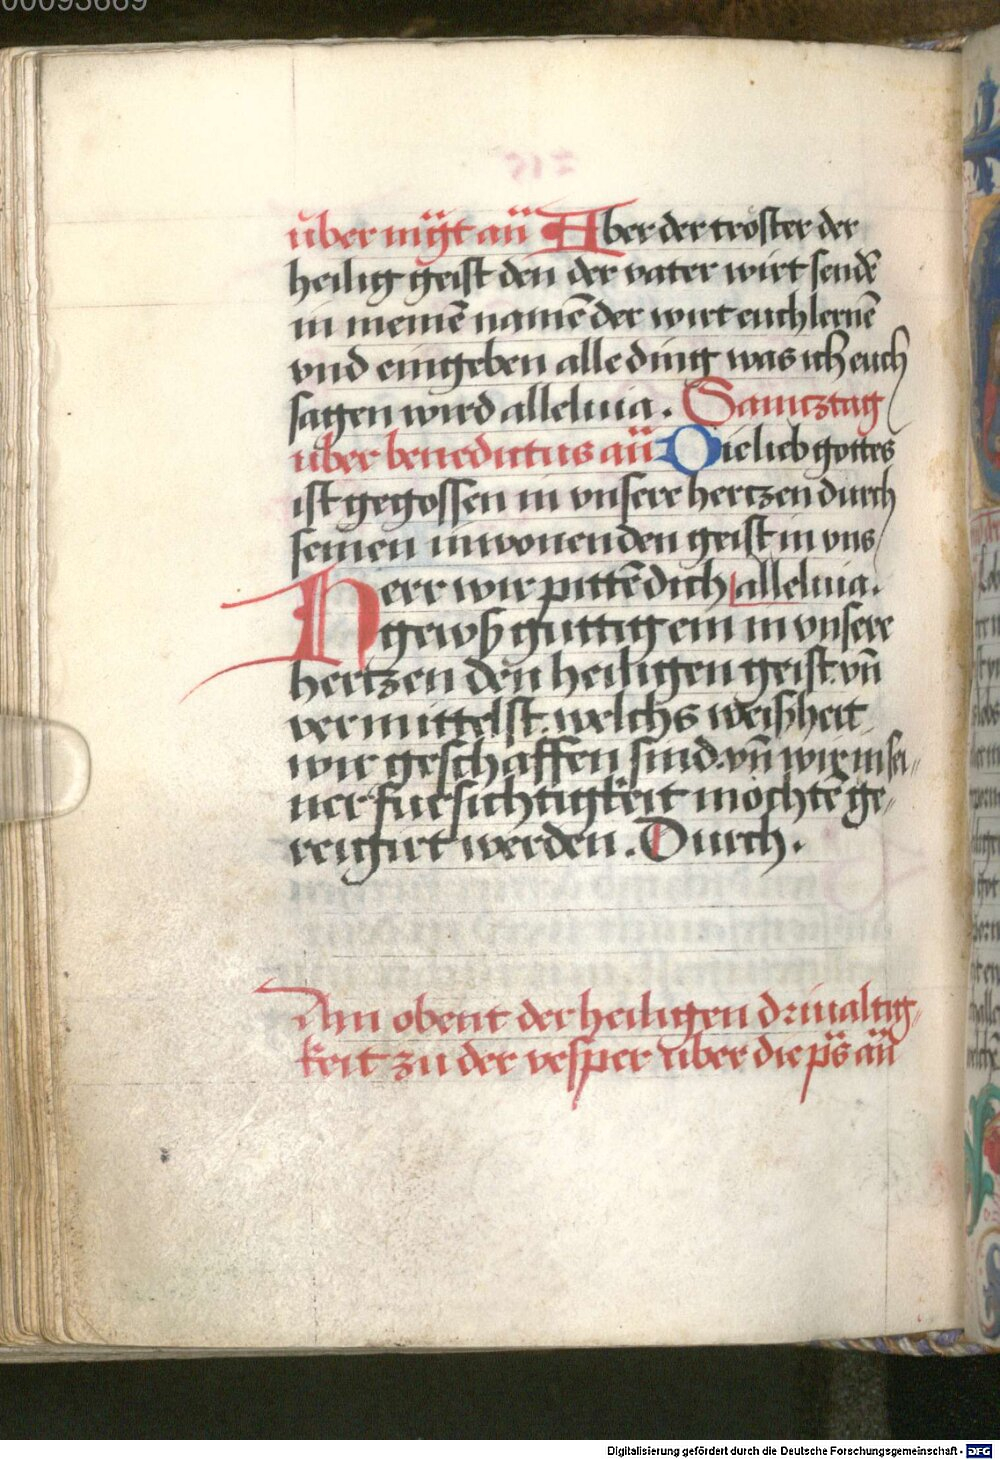 00093669
über mg̈t añ Aber der tröster der
heilig geist den der vater wirt sendē
in meinē namē der wirt euch lernē
vnd eingeben alle ding was ich euch
sagen wird alleluia. Samtztag
über benedictus añ Die lieb gottes
ist gegossen in vnsere hertzen durch
seinen inwonenden geist in vns
Herr wir pittē dich alleluia.
gewß guttig ein in vnsere
hertzen den heiligen geist. vñ
vermittelst. welchs weißheit
wir geschaffen sind. vñ wir in sei„
ner fursichtigkeit möchtē ge„
reigirt werden. Durch.
Am obent der heiligen driualtig„
keit zu der vesper über die ps̄ añ
Digitalisierung gefördert durch die Deutsche Forschungsgemeinschaft - DFG